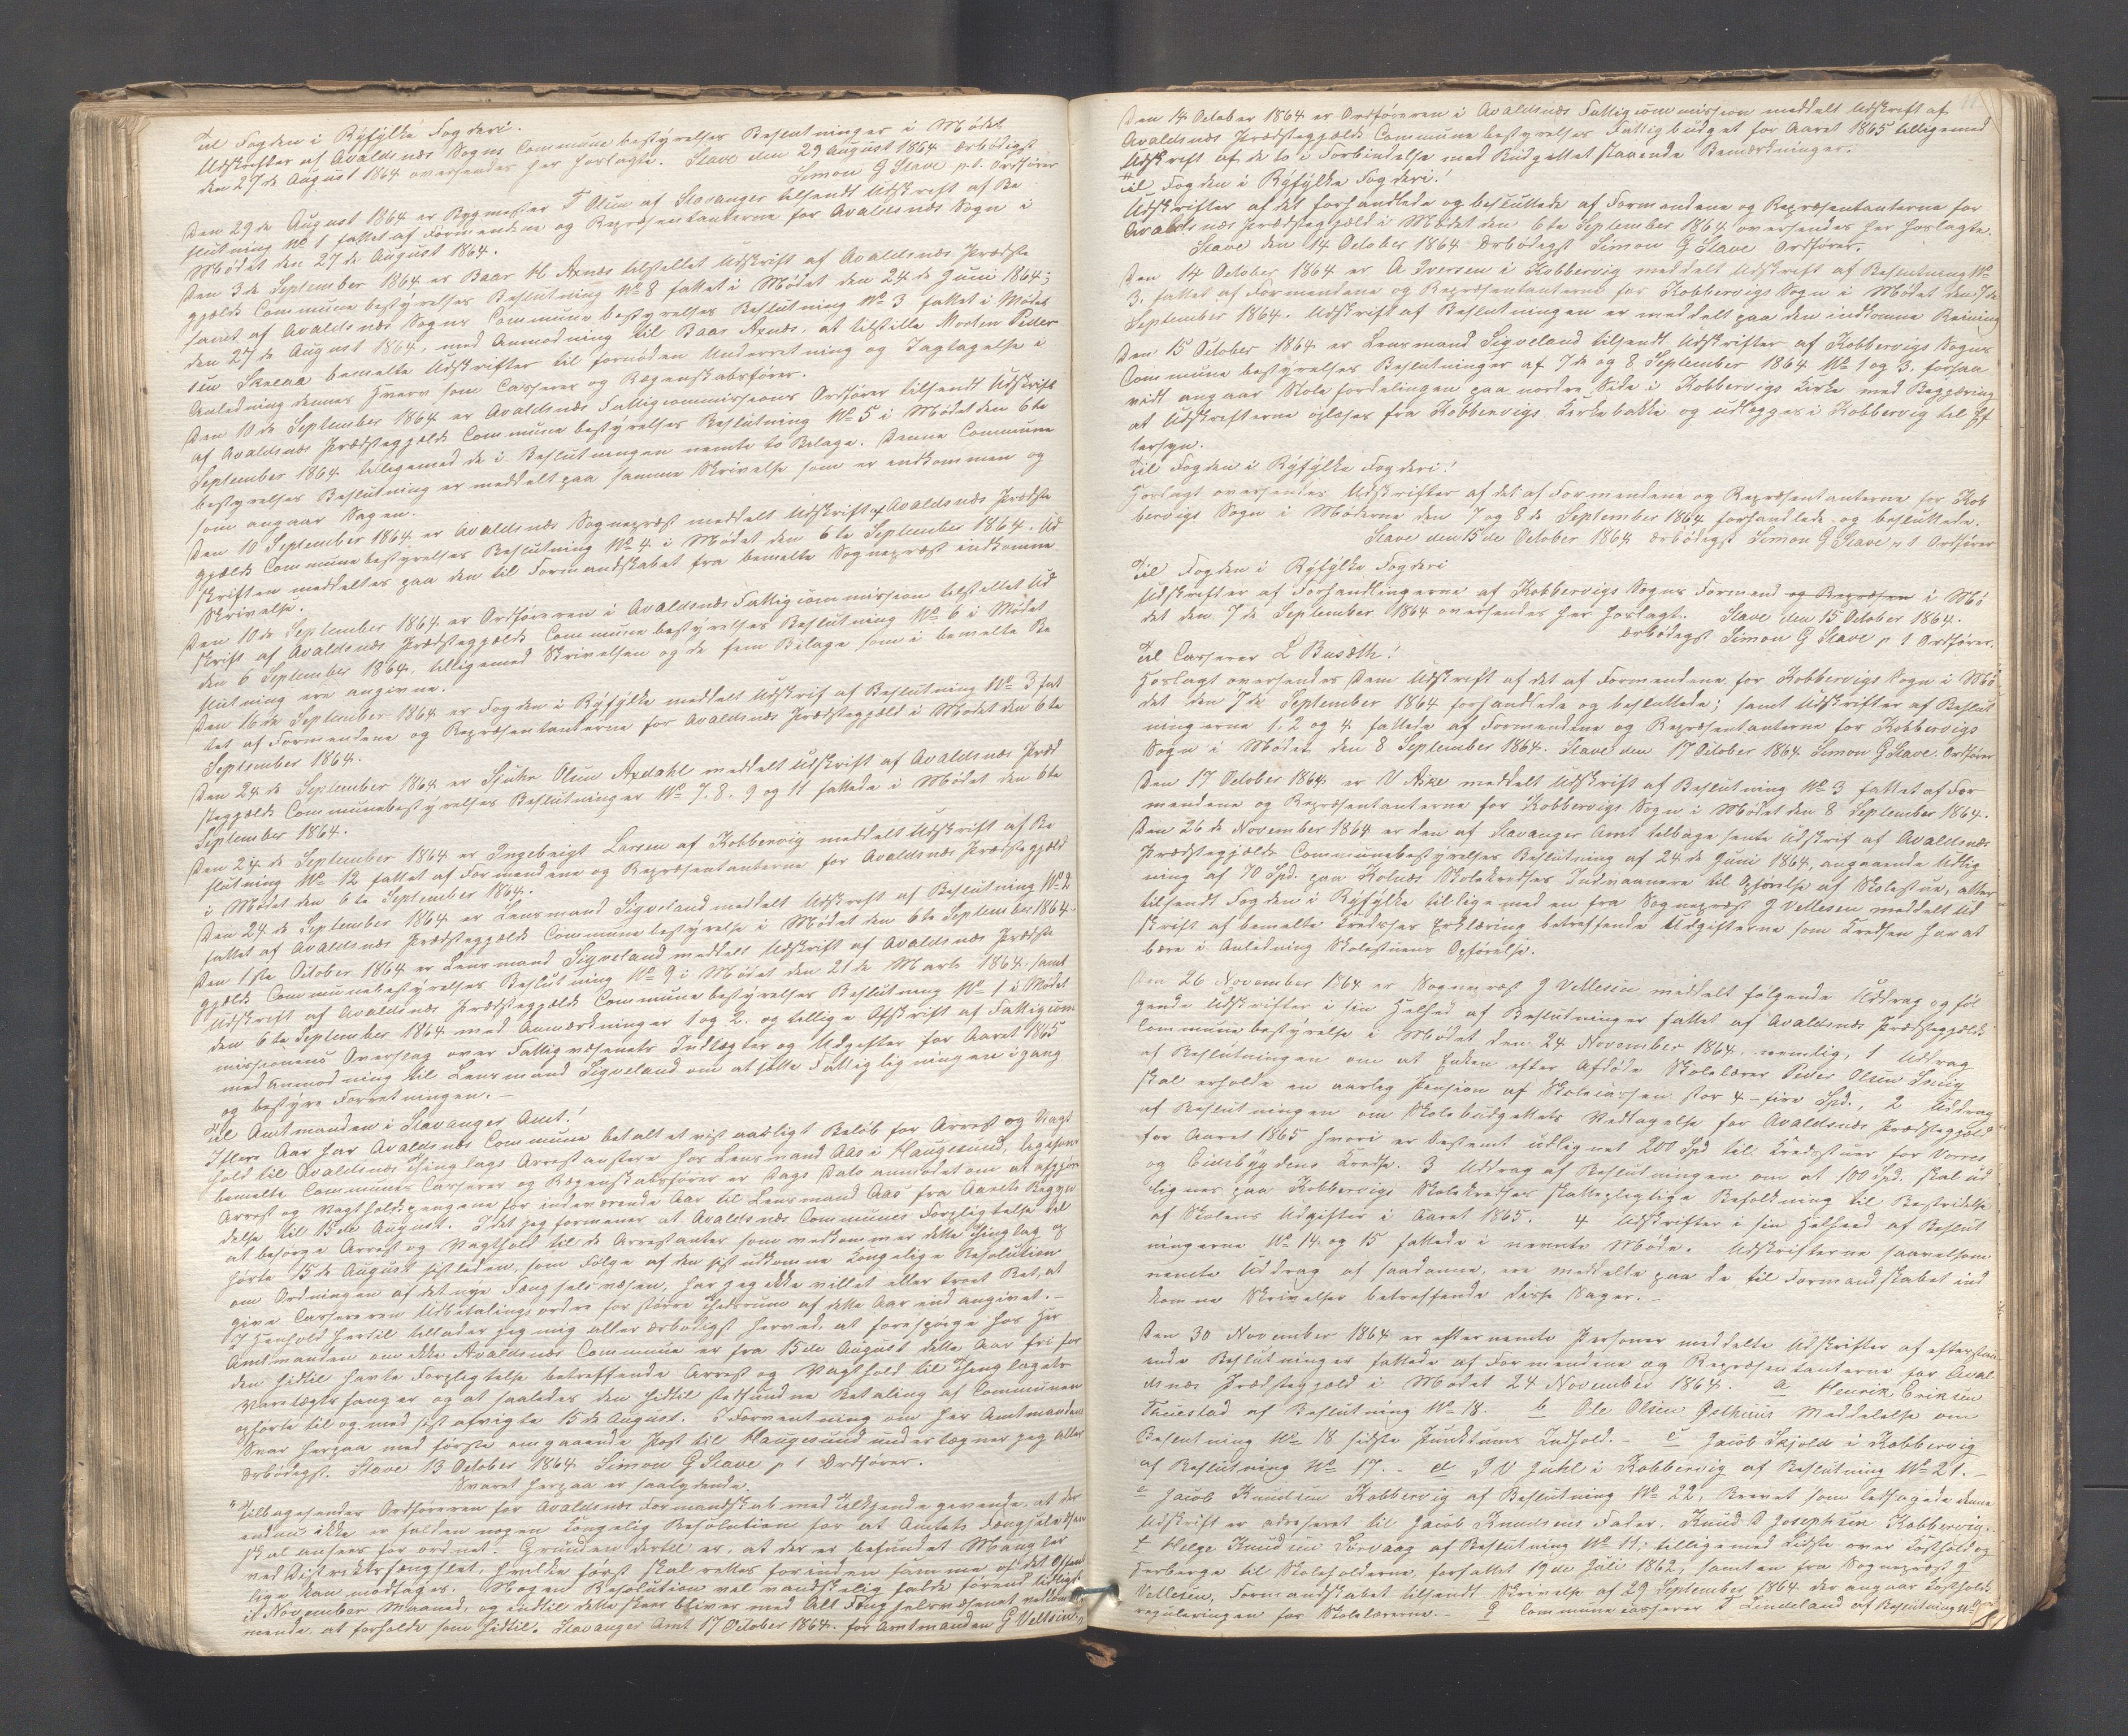 Til Fogden i Ryfylke Fogderi.
Udskrifter af Avaldsnæs Sogns Commune bestyrelses Beslutninger i Mødet
den 27de August 1864 oversendes her hoslagte. Stave den 29 August 1864 ærbødigst
Simon G Stave p.t. Ordfører
Den 29de August 1864 er Bygmester T Olsen af Stavanger tilsendt Udskrift af Be
slutning No 1 fattet af Formendene og Repræsentanterne for Avaldsnæs Sogn i
Mødet den 27de August 1864.
Den 3de September 1864 er Baar H Axnes tilstillet Udskrift af Avaldsnæs Prædste
gjælds Commune bestyrelses Beslutning No 8 fattet i Mødet den 24de Juni 1864;
samt af Avaldsnæs Sogns Commune bestyrelses Beslutning No 3 fattet i Mødet
den 27de August 1864, med Anmodning til Baar Axnes, at tilstille Morten Peder
sen bemelte Udskrifter til fornøden Underretning og Iagtagelse i
Anledning dennes Hverv som Casserer og Regenskabsfører.
Den 10de September 1864 er Avaldsnæs Fattigcommissions Ordfører tilsendt Udskrift
af Avaldsnæs Prædstegjælds Commune bestyrelses Beslutning No 5 i Mødet den 6te
September 1864 tilligemed de i Beslutningen nemte to Bilage. Denne Commune
bestyrelses Beslutning er meddelt paa samme Skrivelse som er indkommen og
som angaar Sagen.
Den 10 September 1864 er Avaldsnæs Sognepræst meddelt Udskrift af Avaldsnæs Prædste
gjælds Commune bestyrelses Beslutning No 4 i Mødet den 6te September 1864. Ud
skriften meddeltes paa den til Formandskabet fra bemelte Sognepræst indkomne
Skrivelse.
Den 10de September 1864 er Ordføreren i Avaldsnæs Fattigcommission tilstillet Ud
skrift af Avaldsnæs Prædstegjælds Commune bestyrelses Beslutning No 6 i Mødet
den 6 September 1864, tilligemed Skrivelsen og de fem Bilage som i bemelte Be
slutning ere angivne.
Den 16de September 1864 er Fogden i Ryfylke meddelt Udskrif af Beslutning No 3 fat
tet af Formendene og Repræsentanterne for Avaldsnæs Prædstegjæld i Mødet den 6te
September 1864.
Den 24de September 1864 er Olsen meddelt Udskrift af Avaldsnæs Præd
stegjælds Communebestyrelses Beslutninger No 7. 8. 9 og 11 fattede i Mødet den 6te
September 1864.
Den 24de September 1864 er Ingebrigt Larsen af Kobbervig meddelt Udskrift af Be
slutning No 12 fattet af Formendene og Repræsentanterne for Avaldsnæs Prædstegjæld
i Mødet den 6te September 1864.
Den 24de September 1864 er Lensmand Sigveland meddelt Udskrift af Beslutning No 2
fattet af Avaldsnæs Prædstegjælds Commune bestyrelse i Mødet den 6te September 1864.
Den 1ste October 1864 er Lensmand Sigveland meddelt Udskrift af Avaldsnæs Prædste
gjælds Communebestyrelses Beslutning No 9 i Mødet den 21de Marts 1864. samt
Udskrift af Avaldsnæs Prædstegjælds Commune bestyrelses Beslutning No 1 i Mødet
den 6te September 1864 med Anmærkninger 1 og 2. og tillige Afskrift af Fattigcom
missionens Overslag over Fattigvæsenets Indtægter og Udgifter for Aaret 1865
med Anmodning til Lensmand Sigveland om at sætte Fattigligningen igang
og bestyre Forretningen.
Til Amtmanden i Stavanger Amt!
I flere Aar har Avaldsnæs Commune betalt et vist aarligt Beløb for Arrest og Vagt
hold til Avaldsnæs Thinglags Arrestantere hos Lensmand Aas i Haugesund, ligesom
bemelte Communes Casserer og Regenskabsfører er Dags Dato anmodet om at afgjøre
Arrest og Vagtholdspengene for indeværende Aar til Lensmand Aas fra Aarets Begyn
delse til 15de August. Idet jeg formener at Avaldsnæs Communes Forpligtelse til
at besørge Arrest og Vagthold til de Arrestanter som vedkommer dette Thinglag op
hørte 15de August sistleden, som Følge af den sist udkomne Kongelige Resolution
om Ordningen af det nye Fængselsvæsen, har jeg ikke villet eller troet Ret, at
give Cassereren Udbetalingsordre for større Tidsrum af dette Aar end angivet.
I Henhold hertil tillader jeg mig allerærbødigst herved, at forespørge hos Her
Amtmanden om ikke Avaldsnæs Commune er fra 15de August dette Aar fri for
den hidtil havte Forpligtelse betreffende Arrest og Vagthold til Thinglagets
Varetægtsfanger og at saaledes den hidtil stedfundne Betaling af Communen
ophørte til og med sist afvigte 15de August. I Forventning om Her Amtmandens
Svar herpaa med første omgaaende Post til Haugesund undertegner jeg aller
ærbødigst. Stave 13 October 1864 Simon G Stave p t Ordfører.
Svaret herpaa er saalydende.
"Tilbagesendes Ordføreren for Avaldsnæs Formandskab med Tilkjende givende, at der
endnu ikke er falden nogen Kongelig Resolution for at Amtets Fængselsvæsen
skal ansees for ordnet. Grunden dertil er, at der er befundet Mangler
ved Distriktsfængslet, hvilke først skal rettes forinden samme af det Offent
lige kan modtages. Nogen Resolution vil vanskelig falde førend tidligst
i November Maaned, og indtil dette skeer bliver med Alt Fængselsvæsenet vedkom
mende at forholde som hidtil. Stavanger Amt 17 October 1864. for Amtmanden G Veltzin.
Den 14 October 1864 er Ordføreren i Avaldsnæs Fattigcommission meddelt Udskrift af
Avaldsnæs Prædstegjælds Commune bestyrelses Fattigbudget for Aaret 1865 tilligemed
Udskrift af de to i Forbindelse med Budgettet staaende Bemærkninger.
Til Fogden i Ryfylke Fogderi!
Udskrifter af det forhandlede og besluttede af Formendene og Repræsentanterne for
Avaldsnæs Prædstegjæld i Mødet den 6te September 1864 oversendes her hoslagte.
Stave den 14 October 1864 Ærbødigst Simon G Stave Ordfører.
Den 14 October 1864 er A Iversen i Kobbervig meddelt Udskrift af Beslutning No
3. fattet af Formendene og Repræsentanterne for Kobbervigs Sogn i Mødet den 7de
September 1864. Udskrift af Beslutningen er meddelt paa den indkomne Reining
Den 15 October 1864 er Lensmand Sigveland tilsendt Udskrifter af Kobbervigs Sogns
Commune bestyrelses Beslutninger af 7de og 8 September 1864 No 1 og 3. forsaa
vidt angaar Stole fordelingen paa nordre Side i Kobbervigs Kirke med Begjæring
at Udskrifterne oplæses fra Kobbervigs Kirkebakke og udlægges i Kobbervig til Ef
tersyn.
Til Fogden i Ryfylke Fogderi!
Hoslagt oversendes Udskrifter af det af Formendene og Repræsentanterne for Kob
bervigs Sogn i Møderne den 7 og 8de September 1864 forhandlede og besluttede.
Stave den 15de October 1864 Ærbødigst Simon G Stave p t Ordfører
Til Fogden i Ryfylke Fogderi
Udskrifter af Forhandlingerne af Kobbervigs Sogns Formend og Repræsen i Mø
det den 7de September 1864 oversendes her hoslagt. Stave den 15 October 1864.
Ærbødigst Simon G Stave p t Ordfører.
Til Casserer L Busæth!
Hoslagt oversendes Dem Udskrift af det af Formendene for Kobbervigs Sogn i Mø
det den 7de September 1864 forhandlede og besluttede; samt Udskrifter af Beslut
ningerne 1, 2 og 4 fattede af Formendene og Repræsentanterne for Kobbervigs
Sogn i Mødet den 8 September 1864. Stave den 17 October 1864 Simon G Stave. Ordfører
Den 17 October 1864 er meddelt Udskrift af Beslutning No 3 fattet af For
mendene og Repræsentanterne for Kobbervigs Sogn i Mødet den 8 September 1864.
Den 26de November 1864 er den af Stavanger Amt tilbage sente Udskrif af Avaldsnæs
Prædstegjælds Communebestyrelses Beslutning af 24de Juni 1864, angaaende Udlig
ning af 70 Spd. paa Kolnæs Skolekredses Indvaanere til Opførelse af Skolestue, atter
tilsendt Fogden i Ryfylke tillige med en fra Sognepræst J Vellesen meddelt Ud
skrift af bemelte Kredses Erklæring betreffende Udgifterne som Kredsen har at
bære i Anledning Skolestuens Opførelse.
Den 26 November 1864 er Sognepræst J Vellesen meddelt følgende Uddrag og føl
gende Udskrifter i sin Helhed af Beslutninger fattet af Avaldsnæs Prædstegjælds
Commune bestyrelse i Mødet den 24 November 1864. nemlig, 1 Uddrag
af Beslutningen om at Enken efter Afdøde Skolelærer Peder Olsen
skal erholde en aarlig Pension af Skolecassen stor 4 - fire Spd., 2 Uddrag
af Beslutningen om Skolebudgettets Vedtagelse for Avaldsnæs Prædstegjæld
for Aaret 1865 hvori er bestemt udlignet 200 Spd til Kredsstuer for Vorres
og Eidsbygdens Kredse. 3 Uddrag af Beslutningen om at 100 Spd. skal ud
lignes paa Kobbervigs Skolekredses skattepligtige Befolkning til Bestridelse
af Skolens Udgifter i Aaret 1865. 4 Udskrifter i sin Helheed af Beslut
ningerne No 14 og 15 fattede i nemte Møde. Udskrifterne saavelsom
nemte Uddrag af saadanne, ere meddelte paa de til Formandskabet ind
komne Skrivelser betreffende disse Sager.
Den 30 November 1864 er efternemte Personer meddelte Udskrifter af efterstaa
ende Beslutninger fattede af Formendene og Repræsentanterne for Aval
dsnæs Prædstegjæld i Mødet 24 November 1864. a Henrik Eriksen
Thuestad af Beslutning No 18. b Ole Olsen Østhuus Meddelelse om
Beslutning No 18 sidste Punktums Indhold. c Jacob Skjold i Kobbervig
af Beslutning No 17. d J V Juhl i Kobbervig af Beslutning No 21.
e Jacob Knudsen Kobbervig af Beslutning No 22, Brevet som ledsagede denne
Udskrift er adreseret til Jacob Knudsens Fader. Knud D Josephsen Kobbervig.
f Helge Knudsen Sørvaag af Beslutning No 11; tilligemed Lidste over Kosthold og
Herberge til Skoleholderne, forfattet 19de Juli 1862, samt en fra Sognepræst J
Vellesen, Formandskabet tilsendt Skrivelse af 29 September 1864. der angaar Kostholds
reguleringen for Skolelærerne. g Commune casserer T Lindeland af Beslutning No